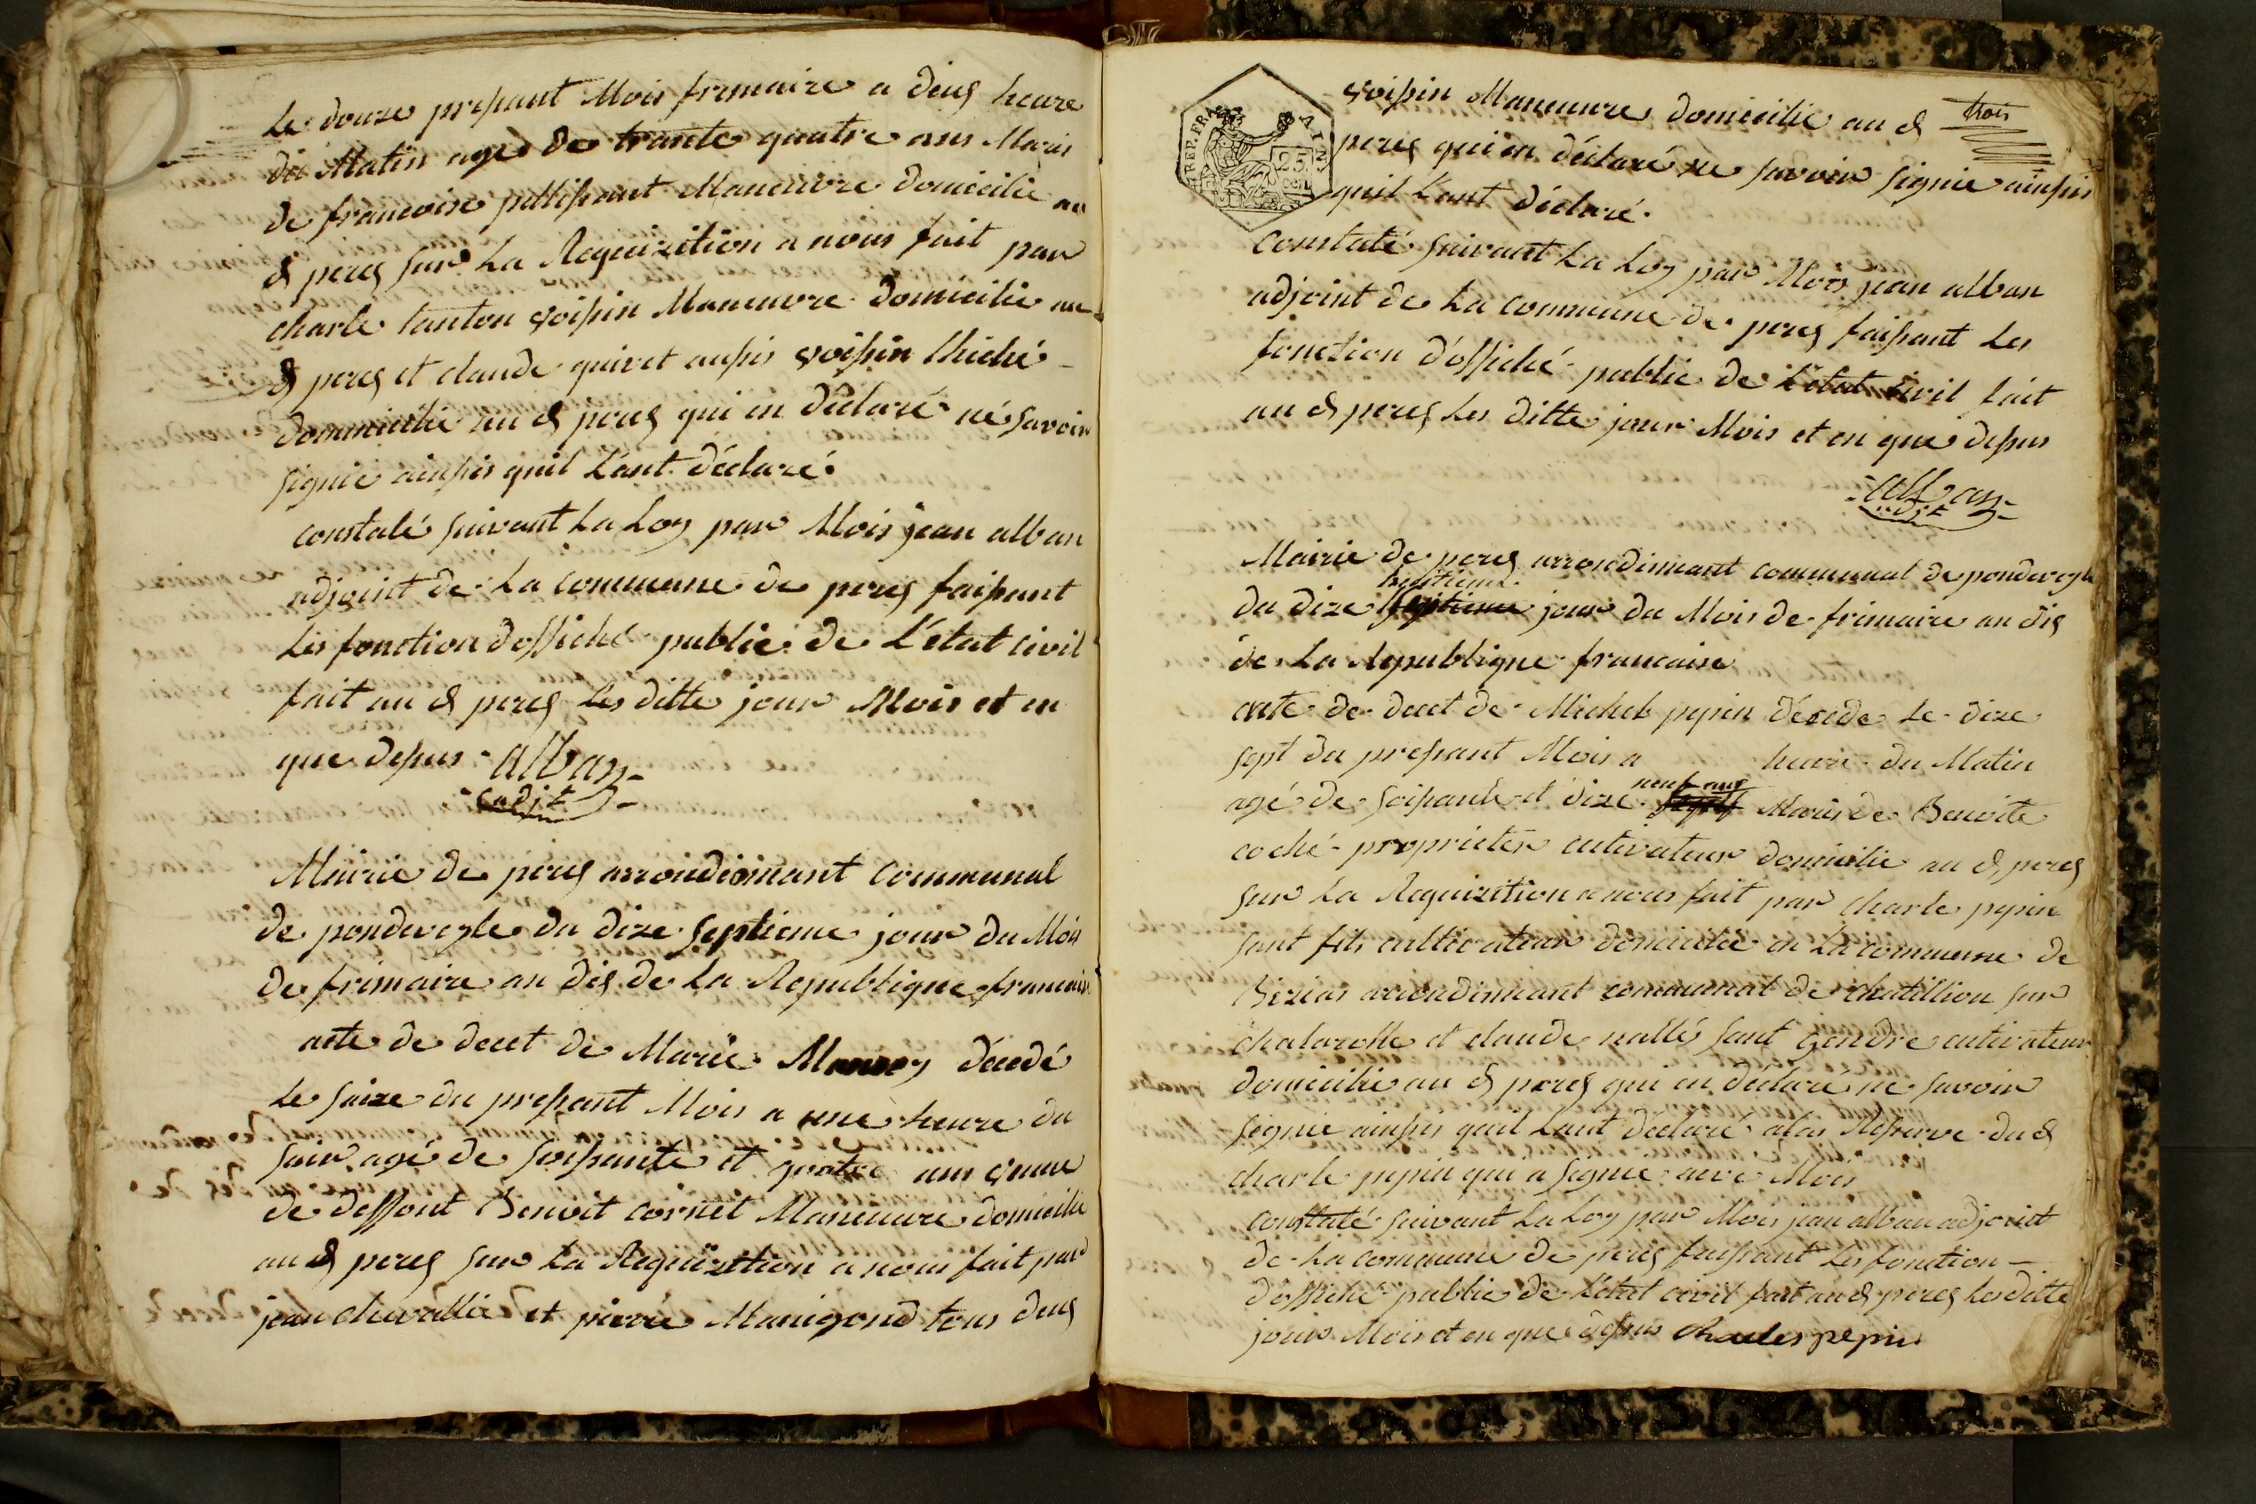 Le douze presant Mois frimaire a deuz heure
du Matin agé de trante quatre ans Maris
de francoise pellissant Maneuvre domicilie au
d perez sur La Requizition a nous fait par
charle tanton voissin Maneuvre domicilie au
d perez et claude quivet aussis voissin
dommicilie au d perez qui on déclaré né savoir
signié ainssis quil L'ant déclaré.
constaté suivant La Loy par Mois jean alban
adjoint de La commune de perez faissant
Les fonction d'offiché public de L'état civil
fait au d perez Les ditte jour Mois et en
que dessus alban
adjt
Mairie de perez arrondissimant communal
de pondevezle du dize septieme jour du Mois
de frimaire an dis de La Republique francais
acte de decet de Marie décedé
Le saize du pressant Mois a une heure du
soir agé de soissante et quatre ans
de deffont Benoit cornet Maneuvre domicilie
au d perez sur La Requizition a nous fait par
jean chevallié et pierre Manigond tous deuz
trois
voissin Maneuvre domicilie au d
perez qui on déclaré ne savoir signié ainssis
quil L'ant déclaré.
REP. FRA. AIN 25 CEN.
constaté suivant La Loy par Mois jean alban
adjoint de La commune de perez faissant Les
fonction d'offiché public de L'etat civil fait
au d perez Les ditte jour Mois et en que dessus
alban
adjt
Mairie de perez arrondimant communal de pondevezle
huitieme
du dize septieme jour du Mois de frimaire an dis
de La Republique francaise
acte de decet de Michel pepin décede Le dize
sept du pressant Mois a heure du Matin
neuf ans
agé de soissante et dize Maris de Benoite
coché proprieter cutivateur domicilie au d perez
sur La Requizition a nous fait par charle pepin
sont fils cultivateur domicilie en La commune de
Bizias arrondimant communal de chatillion sur
chalaronne et claude nallé sont gendre cutivateur
domicilie au d perez qui on déclaré ne savoir
signié ainssis quil L'ant déclaré a las Resserve du d
charle pepin qui a signié avec Mois
constaté suivant La Loy par Mois jean alban adjoint
de La commune de perez faissant Les fonction
d'offiché public de L'état civil fait au d perez Les ditte
jour Mois et en que dessus charles pepin